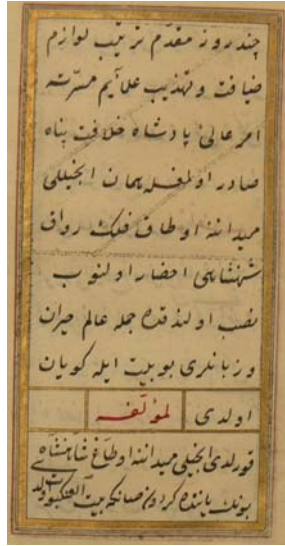 چند روز مقدّم ترتیب لوازم
ضیافت و تهذیب علایم مسرّته
امر عالئ پادشاه خلافت پناه
صادر اولمغله همان انجیللی
میداننه اوطاق فلك رواق
شهنشاهی احضار اولنوب
نصب اولندقده جمله عالم حیران
و زبانلری بو بیت ایله کویان
اولدی لمؤلفه
قورلدی انجیللی میداننه اوطاغ شاهنشاهی
بونك یاننده کردون صانکه بیت العنکبوت اولدی